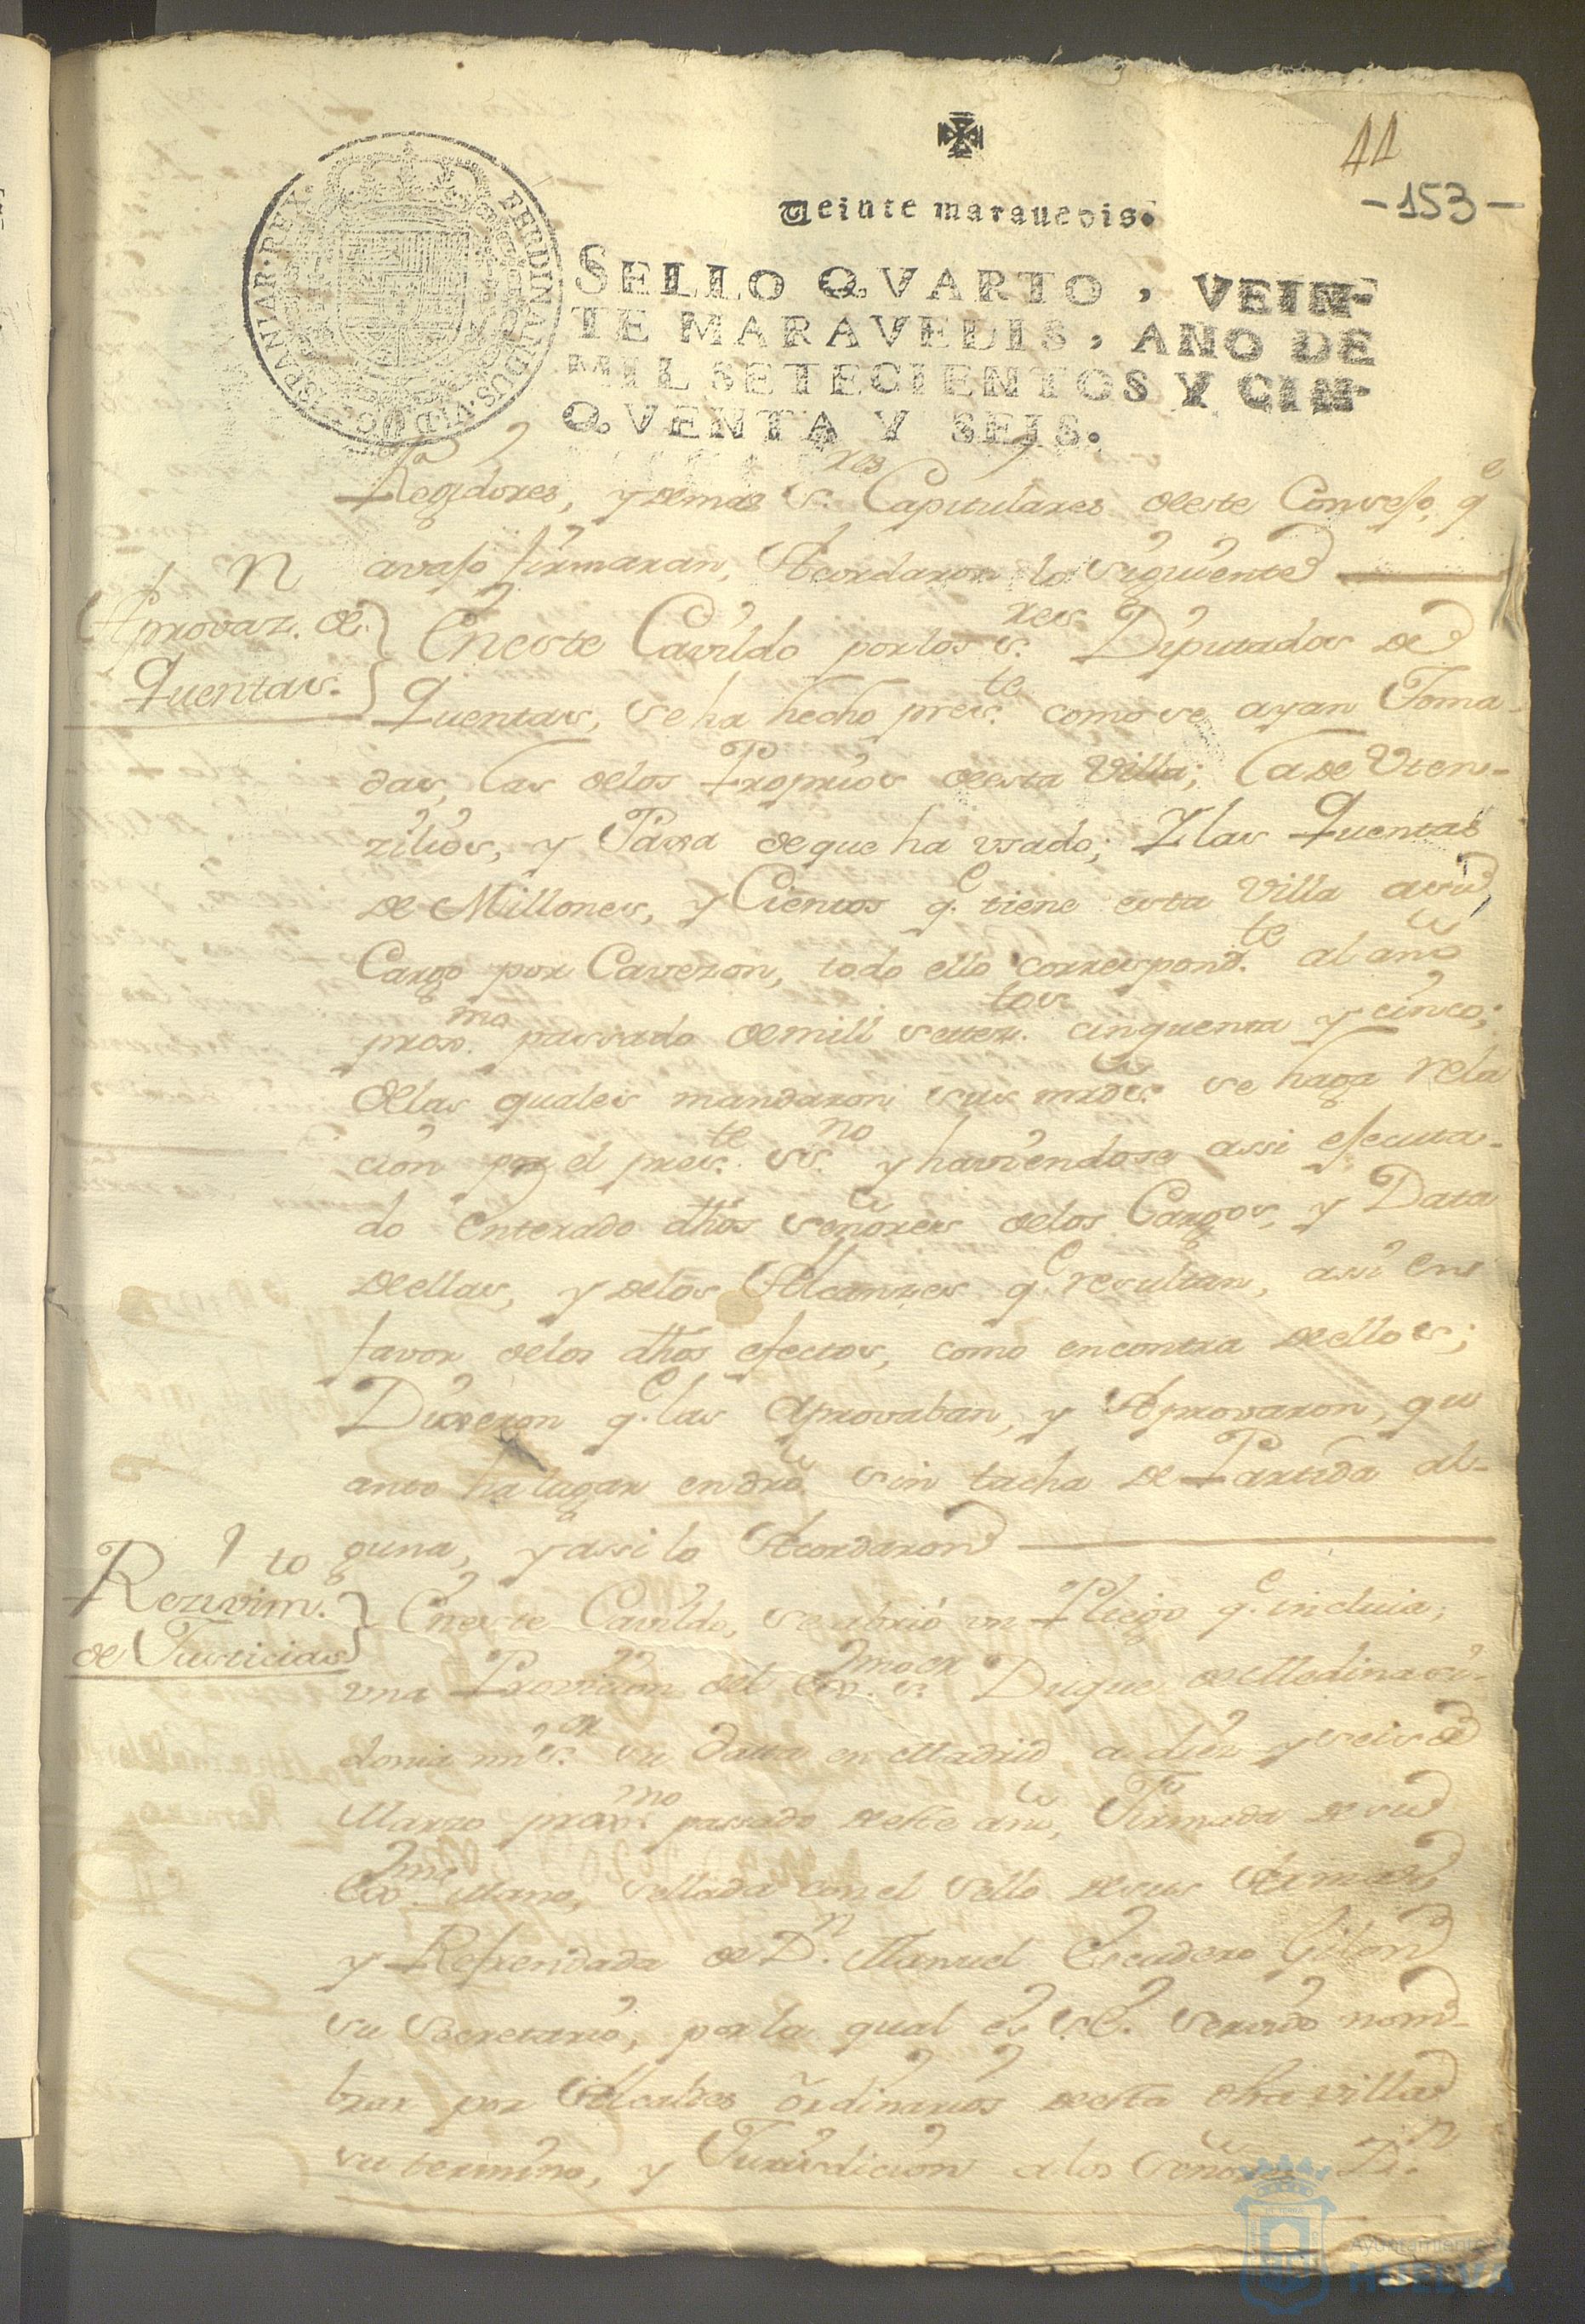 11
-153-
Veinte maravedis.
SELLO QVARTO, VEIN-
TE MARAVEDIS, AÑO DE
MIL SETECIENTOS Y CIN-
QVENTA Y SEIS.
FERDINANDUS·VI·D·G·HISPANIAR·REX·
Regidores, y demas s.res Capitulares deeste Consejo, q.e
avajo firmaran, Acordaron lo Siguiente
Aprovaz.n de
Quentas.
Eneste Cavildo porlos s.res Diputados de
Quentas, se ha hecho pres.te como se ayan Toma-
das, las delos Proprios deesta Villa; la de Vten-
zilios, y Paxa deque ha vsado; Y las Quentas
de Millones, y Cientos q.e tiene esta Villa asu
Cargo por Cavezon, todo ello correspond.te al año
prox.mo passado demill setez.tos cinquenta y cinco;
Delas quales mandaron sus mrds se haga rela
cion por el pres.te ss.no y haviendose assi ejecuta-
do enterado dhos señores delos Cargos, y Data
deellas, y delos Alcanzes q.e resultan, assi en
favor delos dhos efectos, como encontra deellos;
Dixeron q.e las Aprovaban, y Aprovaron, qu
anto ha lugar endro sin tacha de Partida al-
guna, y assi lo Acordaron
Rezivim.to
de Justicias
Eneste Cavildo, se abrió vn Pliego q.e incluia,
vna Provision del Exmo. s.or Duque deMedinasi-
donia mi s.or su data en Madrid a diez y seis de
Marzo prox.mo passado deeste año, Firmada de su
Ex.ma Mano, sellada conel Sello desus Armas
y Refrendada de D.n Manuel Escudero Gilon
su Secretario, por la qual es S.E. servido nom-
brar por Alcaldes ordinarios deesta dha villa
su termino, y Jurisdicion alos Señores D.n
Ayuntamiento de
HUELVA